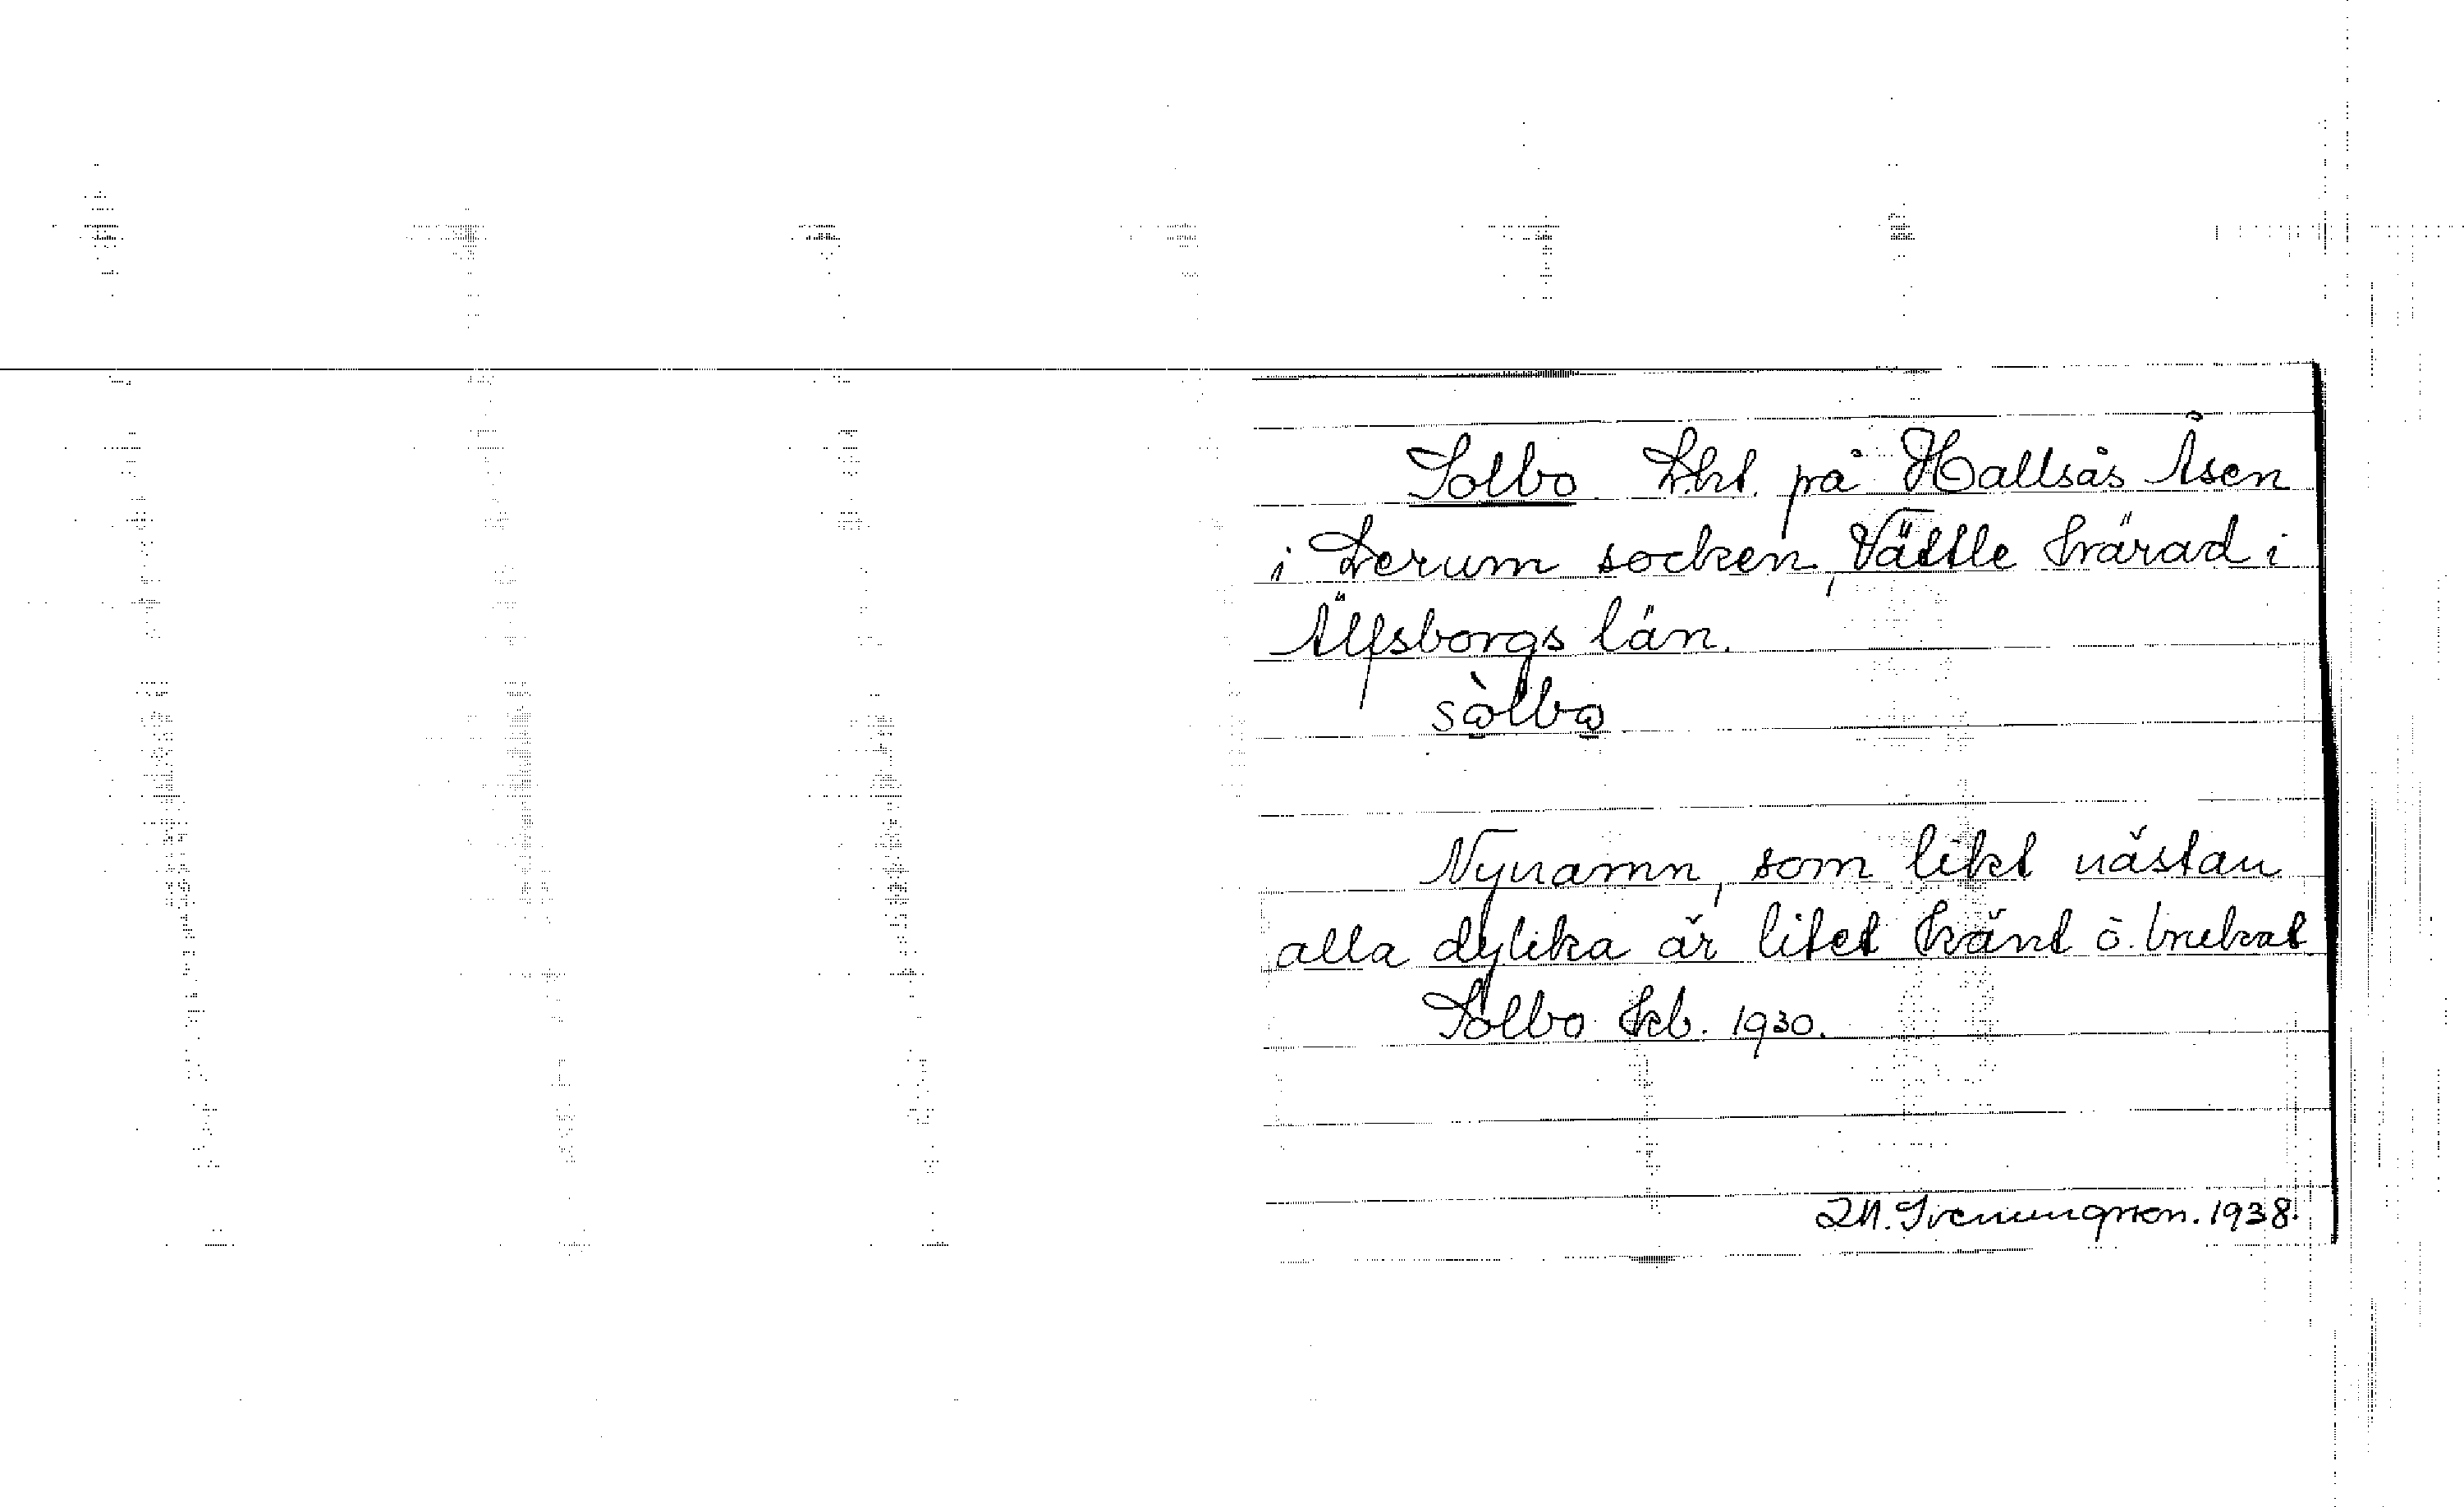 Solbo Lht. på Hallsås Åsen
i Lerum socken, Vättle härad i
Älfsborgs län.
sòlbo
Nynamn, som likt nästan
alla dylika är litet känt o. brukat
Solbo kb. 1930.
Svenungsson. 1938.